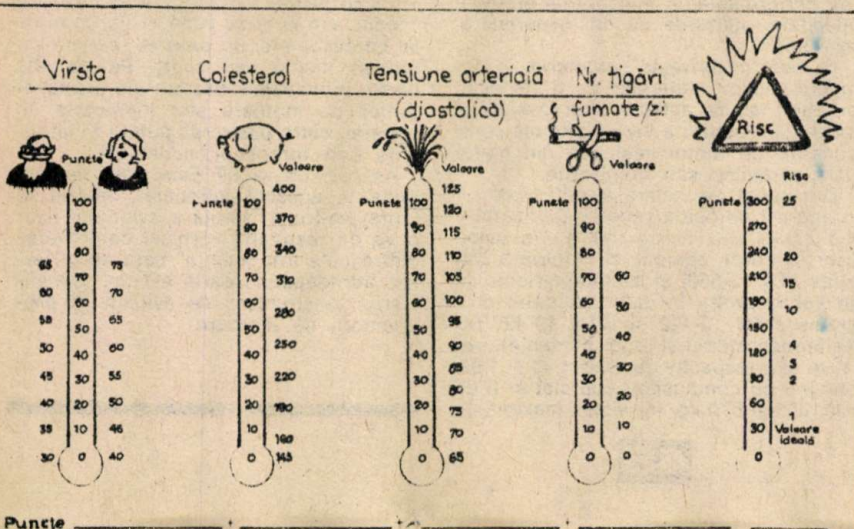 Vîrsta
Colesterol
Tensiune arterială
(diastolică)
Nr. țigări
fumate/zi
Risc
Puncte
100
90
80
70
60
50
40
30
20
10
0
65
60
50
45
40
35
30
75
70
65
60
55
50
46
40
Puncte
100
90
80
70
60
50
40
30
20
10
0
Valoare
400
370
340
310
280
250
220
190
160
145
Puncte
100
90
80
70
60
50
40
30
20
10
0
Valoare
125
120
115
110
105
100
95
90
85
80
75
70
65
Puncte
100
90
80
70
60
50
40
30
20
10
0
Valoare
60
50
40
30
20
10
0
Puncte
300
270
240
210
180
150
120
90
60
30
0
Risc
25
20
15
10
4
3
2
1
Valoare
ideală
Puncte + + + +